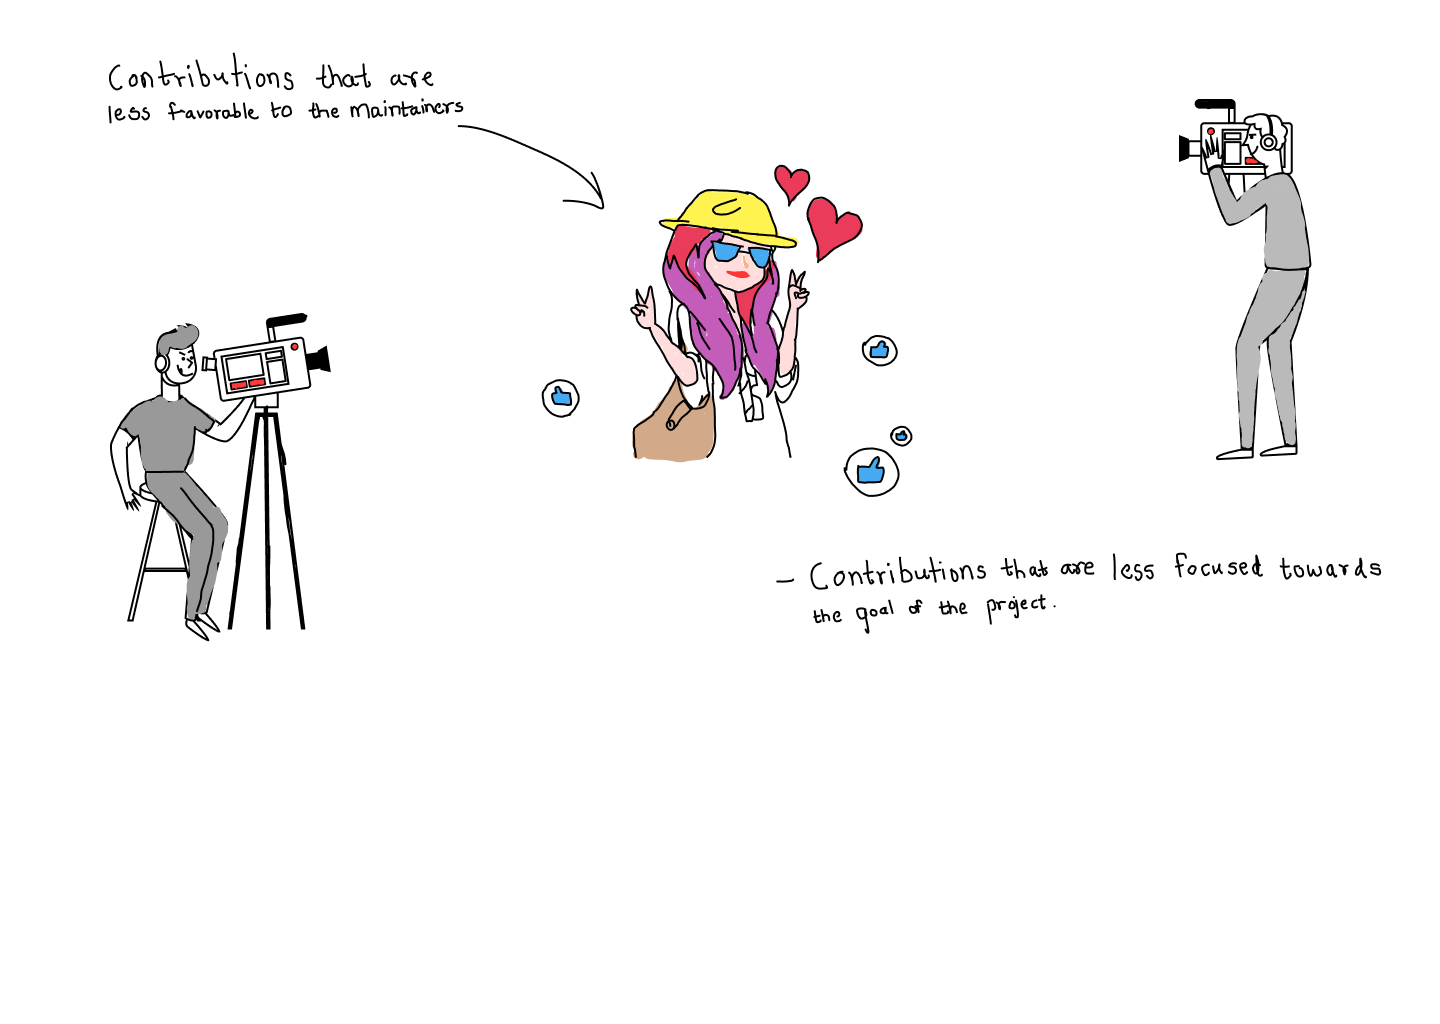 Contributions that are
less favorable to the maintainers
- Contributions that are less focused towards
the goal of the project.